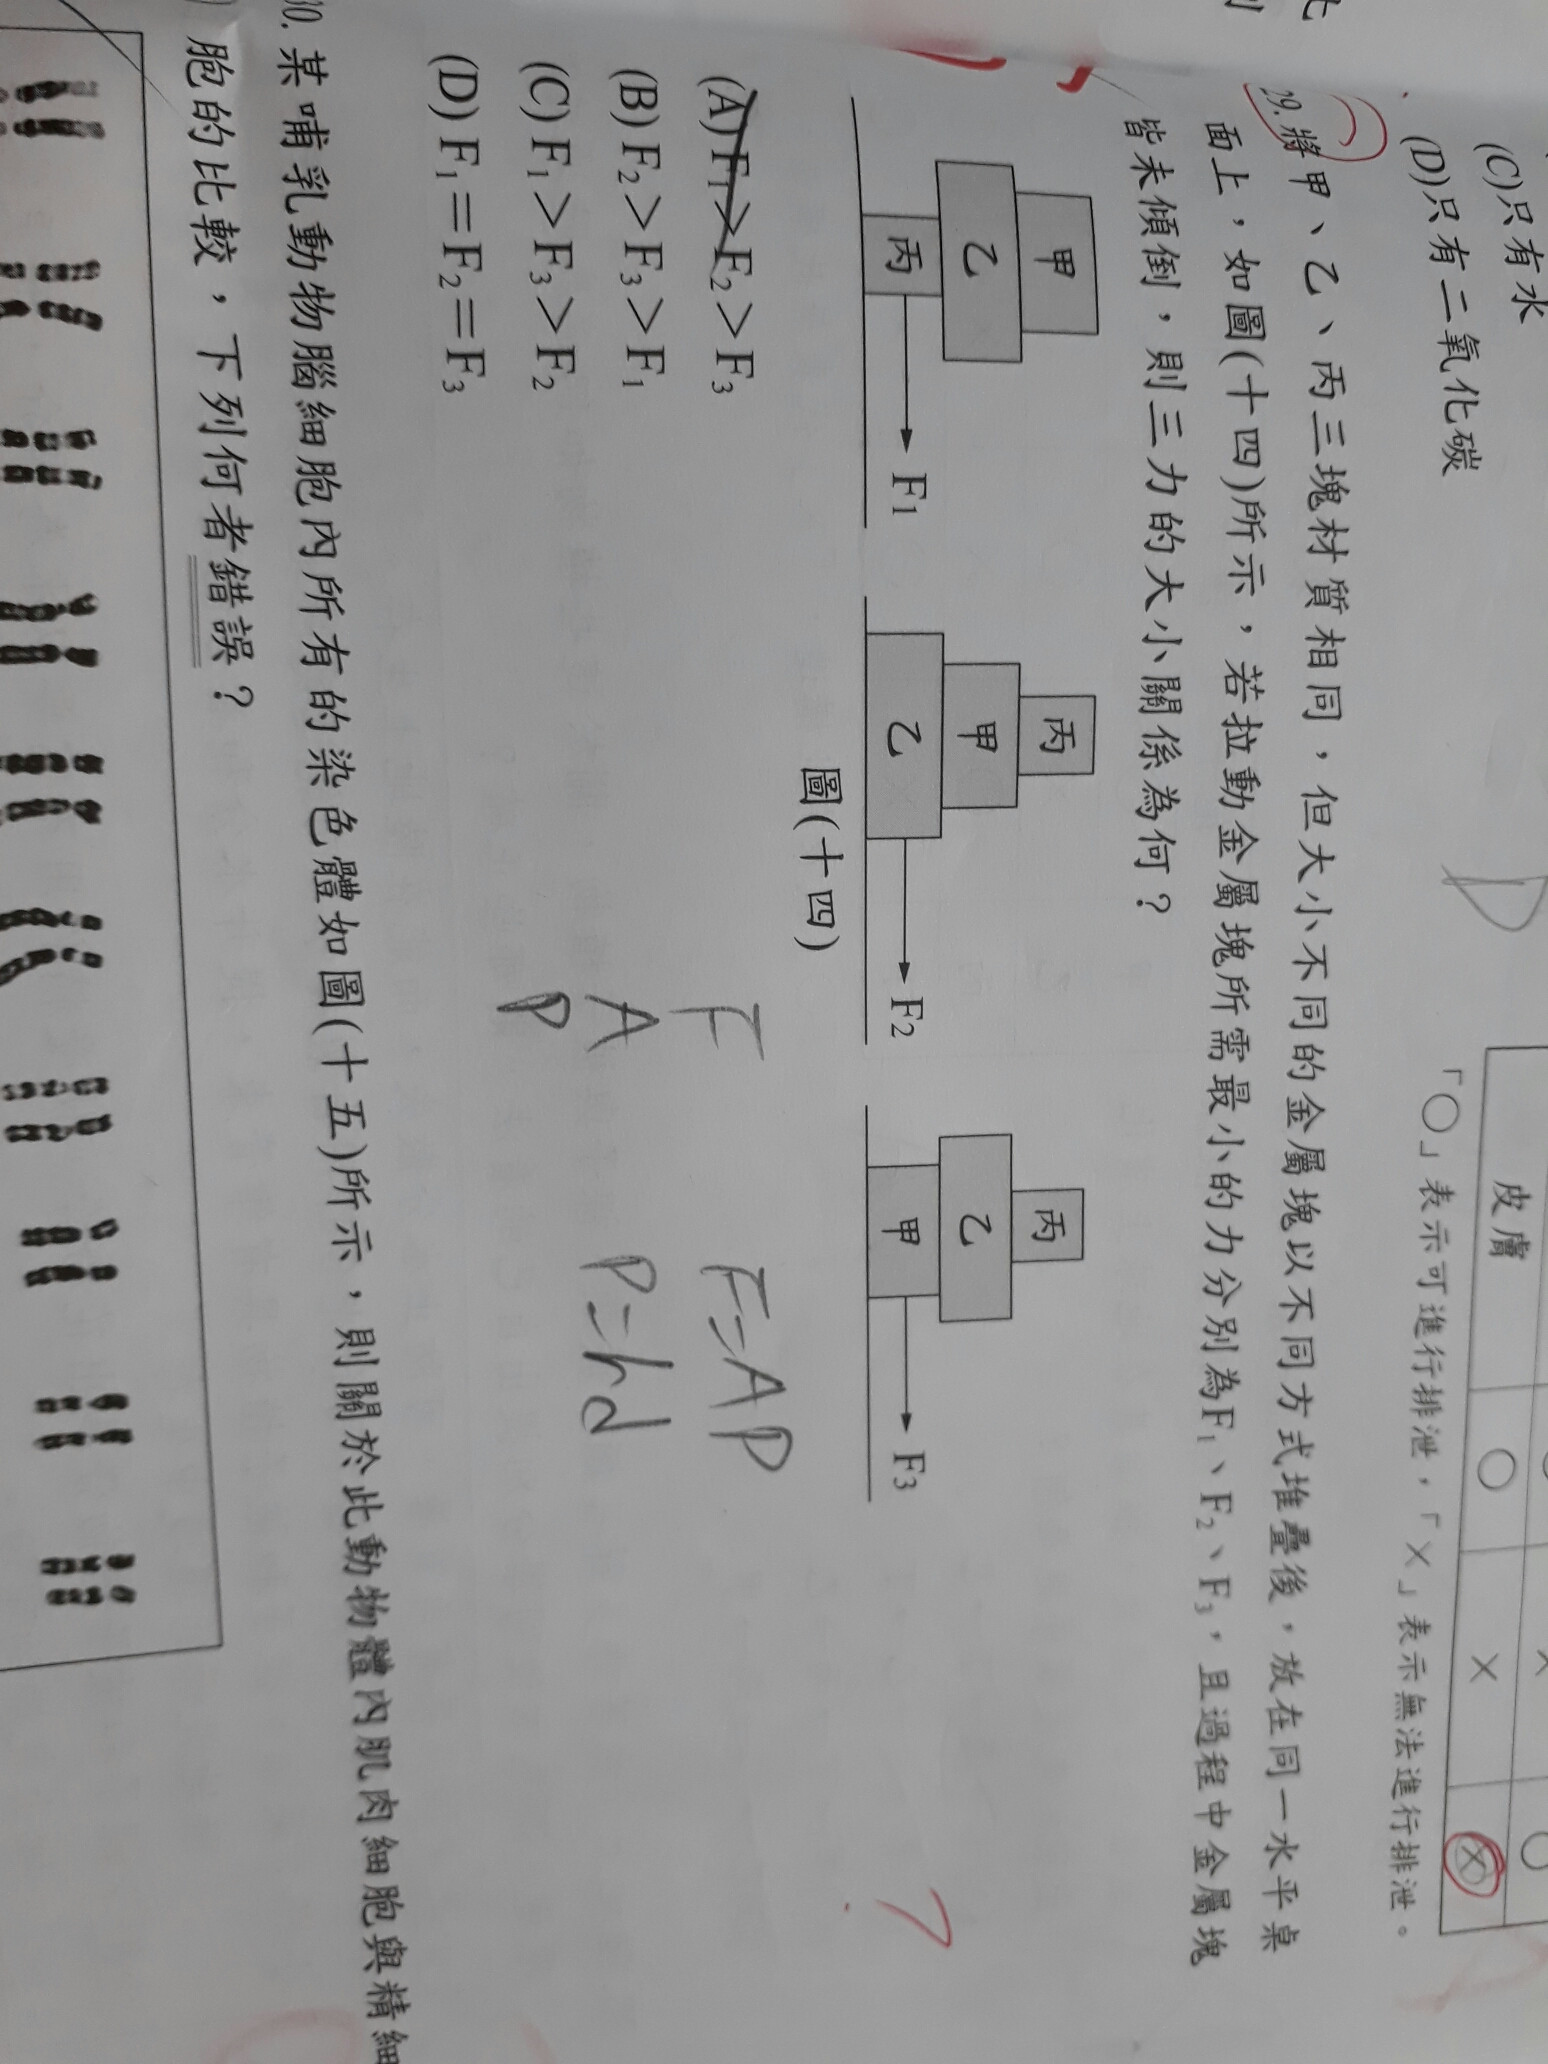 (C)只有水
(D)只有二氧化碳
皮膚 ○ × ×
「○」表示可進行排泄,「×」表示無法進行排泄。
29.將甲、乙、丙三塊材質相同,但大小不同的金屬塊以不同方式堆疊後,放在同一水平桌
面上,如圖(十四)所示,若拉動金屬塊所需最小的力分別為F₁、F₂、F₃,且過程中金屬塊
皆未傾倒,則三力的大小關係為何?
甲 丙 丙
乙 甲 乙
丙 F₁ 乙 F₂ 甲 F₃
圖(十四)
(A) F₁>F₂>F₃
(B) F₂>F₃>F₁
(C) F₁>F₃>F₂
(D) F₁=F₂=F₃
F
A
P
F=AP
P=hd
?
30. 某哺乳動物腦細胞內所有的染色體如圖(十五)所示,則關於此動物體內肌肉細胞與精細
胞的比較,下列何者錯誤?